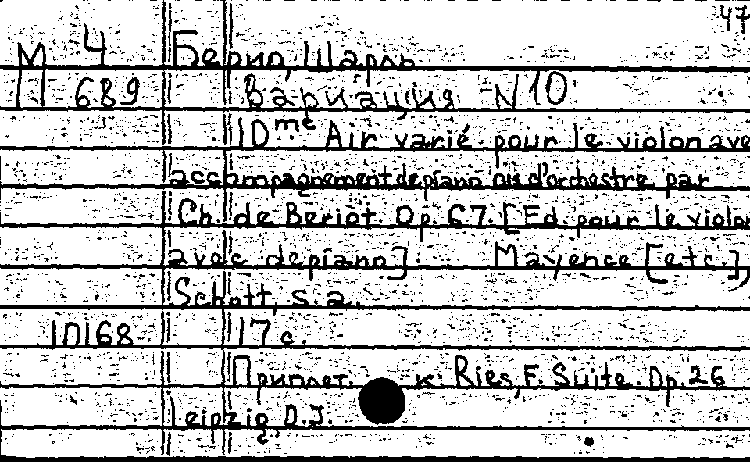 47
М 4 Берио, Шарль
П 689 Вариация N 10
10me Air varié pour le violon ave
accompagnement de piano ou d'orchestre par
Ch. de Beriot. Op. 67. [Ed. pour le violon
avec de piano]. Mayence [etc.],
Schott, s. a.
10168 17 c.
Приплет. к: Ries, F. Suite. Op. 26
Leipzig, D. J.